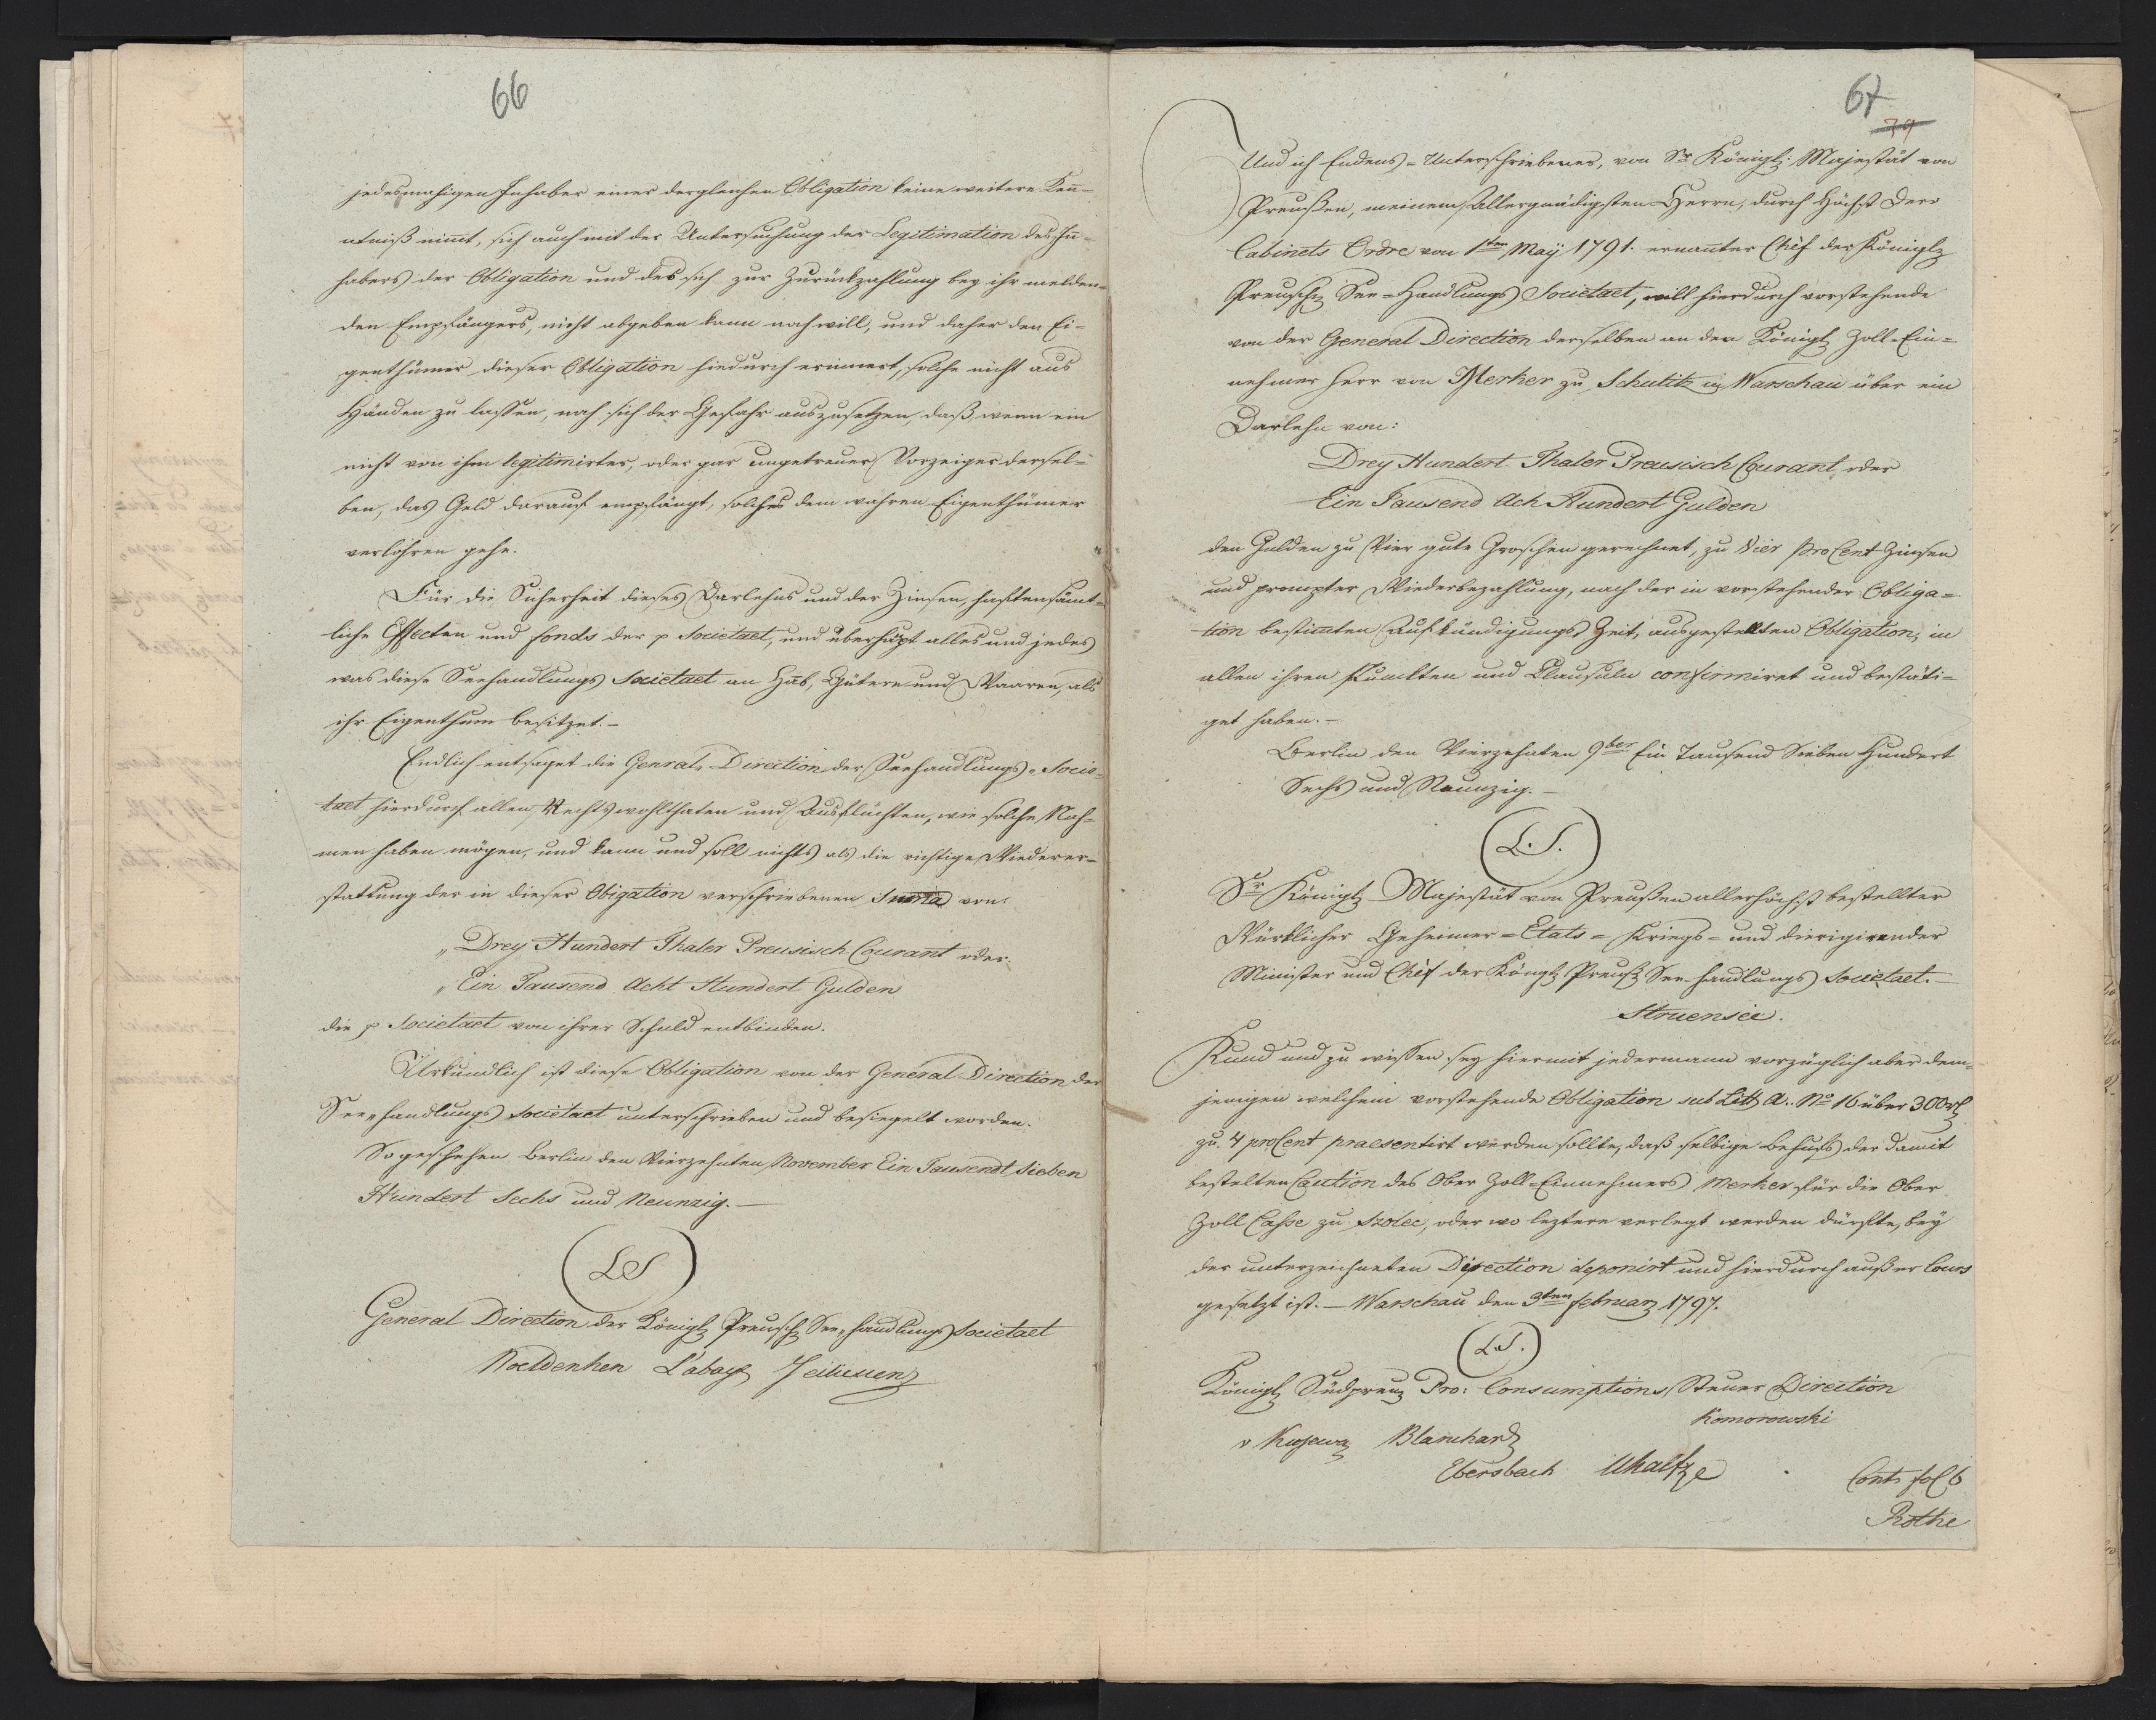 66
jedesmahigen Inhaber einer dergleichen Obligation keine weitere Ken̅-
ntniß nim̅t, sich auch mit der Untersuchung der Legitimation des In-
habers der Obligation und des sich zur Zurückzahlung bey ihr melden-
den Empfängers, nicht abgeben kann noch will, und daher den Ei-
genthümer dieser Obligation hiedurch erinnert, solche nicht aus
Händen zu lassen, noch sich der Gefahr auszusetzen, daß, wenn ein
nicht von ihm legitimirter, oder gar ungetreuer Vorzeiger dersel-
ben, das Geld darauf empfängt, solches dem wahren Eigenthümer
verlohren gehe.
Für die Sicherheit dieses Darlehns und der Zinsen, haften sämt-
liche Effecten und Fonds der p Societaet, und überhaupt alles und jedes
was diese Seehandlungs Societaet an Haab, Gütern und Waaren, als
ihr Eigenthum besitzet.-
Endlich entsaget die Genral-Direction der Seehandlungs-Socie-
taet hierdurch allen Rechtswohlthaten und Ausflüchten, wie solche Nah-
men haben mögen, und kann und soll nichts als die richtige Wiederer-
stattung der in dieser Obigation verschriebenen Sum̅a von:
„Drey Hundert Thaler Preusisch Courant oder
„Ein Tausend Acht Hundert Gulden
die p Societaet von ihrer Schuld entbinden.
Urkundlich ist diese Obligation von der General Direction der
See-handlungs Societaet unterschrieben und besiegelt worden.
So geschehen Berlin den Vierzehnten November Ein Tausendt Sieben
Hundert Sechs und Neunzig.—
LS
General Direction der Königl Preusch See-handlungs Societaet
Labaye
67
79
Und ich Endens-Unterschriebener, von Sr Königl: Majestät von
Preußen, meinem Allergnädigsten Herrn, durch Höchst Dero
Cabinets Ordre von 1ten May 1791. ernan̅ter Chef der Königl
Preusch See-Handlungs Societaet, will hierdurch vorstehende
von der General Direction derselben an den Königl Zoll-Ein-
nehmer Herr von Merker zu Schulitz in Warschau über ein
Darlehn von:
Drey Hundert Thaler Preusisch Courant oder
Ein Tausend Ach Hundert Gulden
den Gulden zu Vier gute Groschen gerechnet, zu Vier ProCent Zinsen
und prompter Wiederbezahlung, nach der in vorstehender Obliga-
tion bestim̅ten Aufkündigungs Zeit, ausgestellten Obligation, in
allen ihren Punckten und Clausuln confirmiret und bestäti-
get haben.-
Berlin den Vierzehnten 9ber Ein Tausend Sieben Hundert
Sechs und Neunzig.—
L.S.
Sr Königl Majestät von Preußen allerhöchst bestellter
Würklicher Geheimer-Etats-Kriegs- und dierigirender
Minister und Chèf der Köngl Preuß See-handlungs Societaet.—
Struensee.
Kund und zu wissen sey hiermit jedermann vorzüglich aber dem-
jenigen welchem vorstehende Obligation sub Litt A. No 16 über 300 rl
zu 4 proCent praesentirt werden sollte, daß selbige behufs der damit
bestelten Caution des Ober Zoll-Einnehmers Merker für die Ober
Zoll Casse zu Szolec, oder wo leztere verlegt werden dürfte, bey
der unterzeichneten Direction deponirt und hierdurch außer Cours
gesetzt ist.— Warschau den 3ten februar 1797.
L.S.
Königl Südpreuz Pro: Consumptions Steuer Direction
Komorowski
Blanchard
Ebersbach
Cont fol 6
Rothe